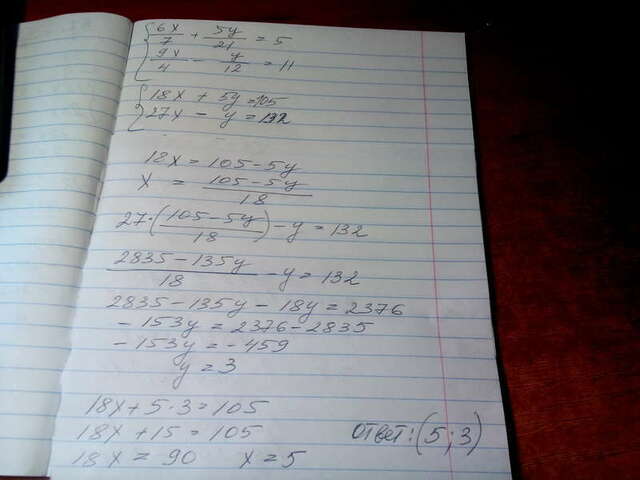 6x/7 + 5y/21 = 5
9x/4 - y/12 = 11
18x + 5y = 105
27x - y = 132
18x = 105 - 5y
x = (105 - 5y)/18
27·((105 - 5y)/18) - y = 132
(2835 - 135y)/18 - y = 132
2835 - 135y - 18y = 2376
- 153y = 2376 - 2835
- 153y = - 459
y = 3
18x + 5·3 = 105
18x + 15 = 105
18x = 90 x = 5
ответ: (5; 3)